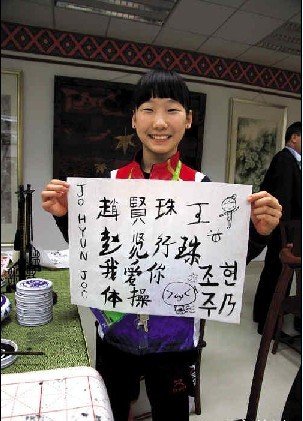 JO HYUN JOO
趙賢珠王
赵行珠
我爱你 조현
体操 주乃